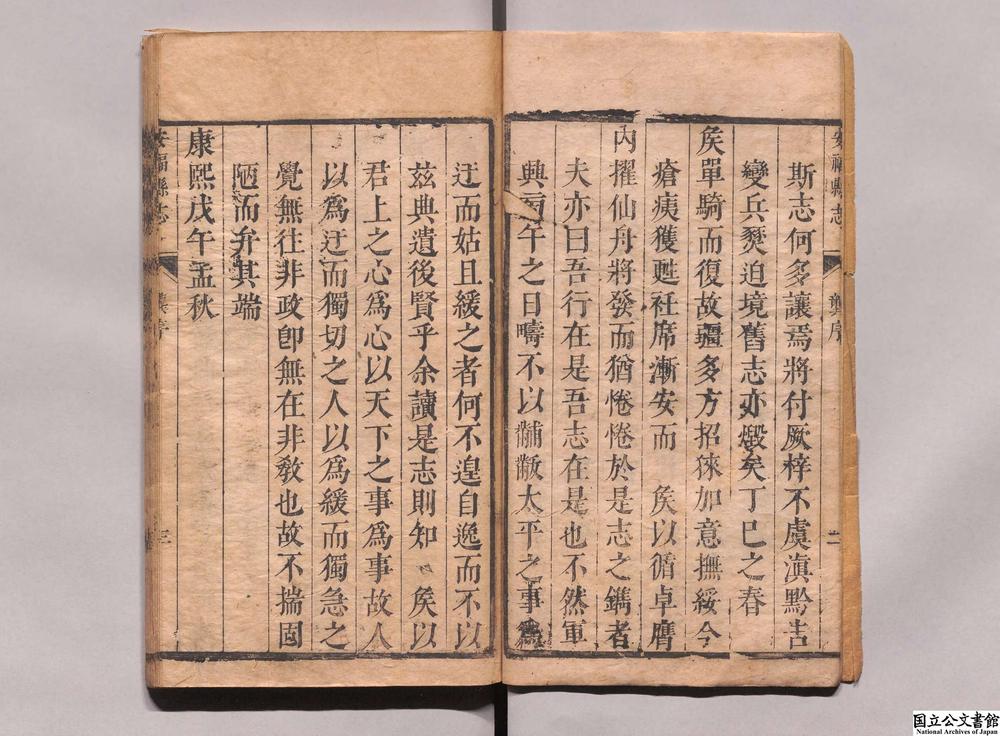 安福縣志
龔序
二
斯志何多讓焉將付厥梓不虞滇黔告
變兵燹迫境舊志亦燬矣丁巳之春
矦單騎而復故疆多方招徠加意撫綏今
瘡痍獲甦社席漸安而 矦以循卓膺
內擢仙舟將發而猶惓惓於是志之鐫者
夫亦曰吾行在是吾志在是也不然軍
興 午之日疇不以黼黻太平之事爲
迂而姑且緩之者何不遑自逸而不以
茲典遺後賢乎余讀是志則知 矦以
君上之心爲心以天下之事爲事故人
以爲迂而獨切之人以爲緩而獨急之
覺無往非政卽無在非敎也故不揣固
陋而弁其端
康熙戊午孟秋
安福縣志
龔序
三
国立公文書館
National Archives of Japan